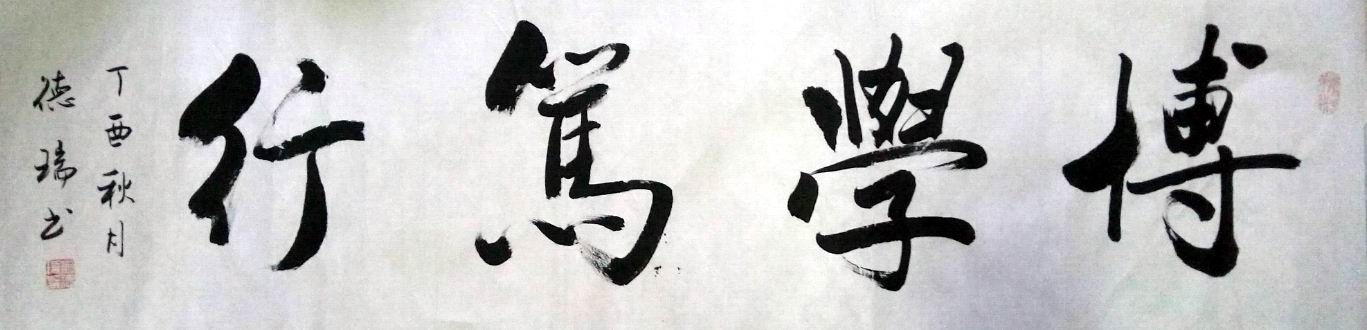 博學篤行
丁酉秋月
德瑞书